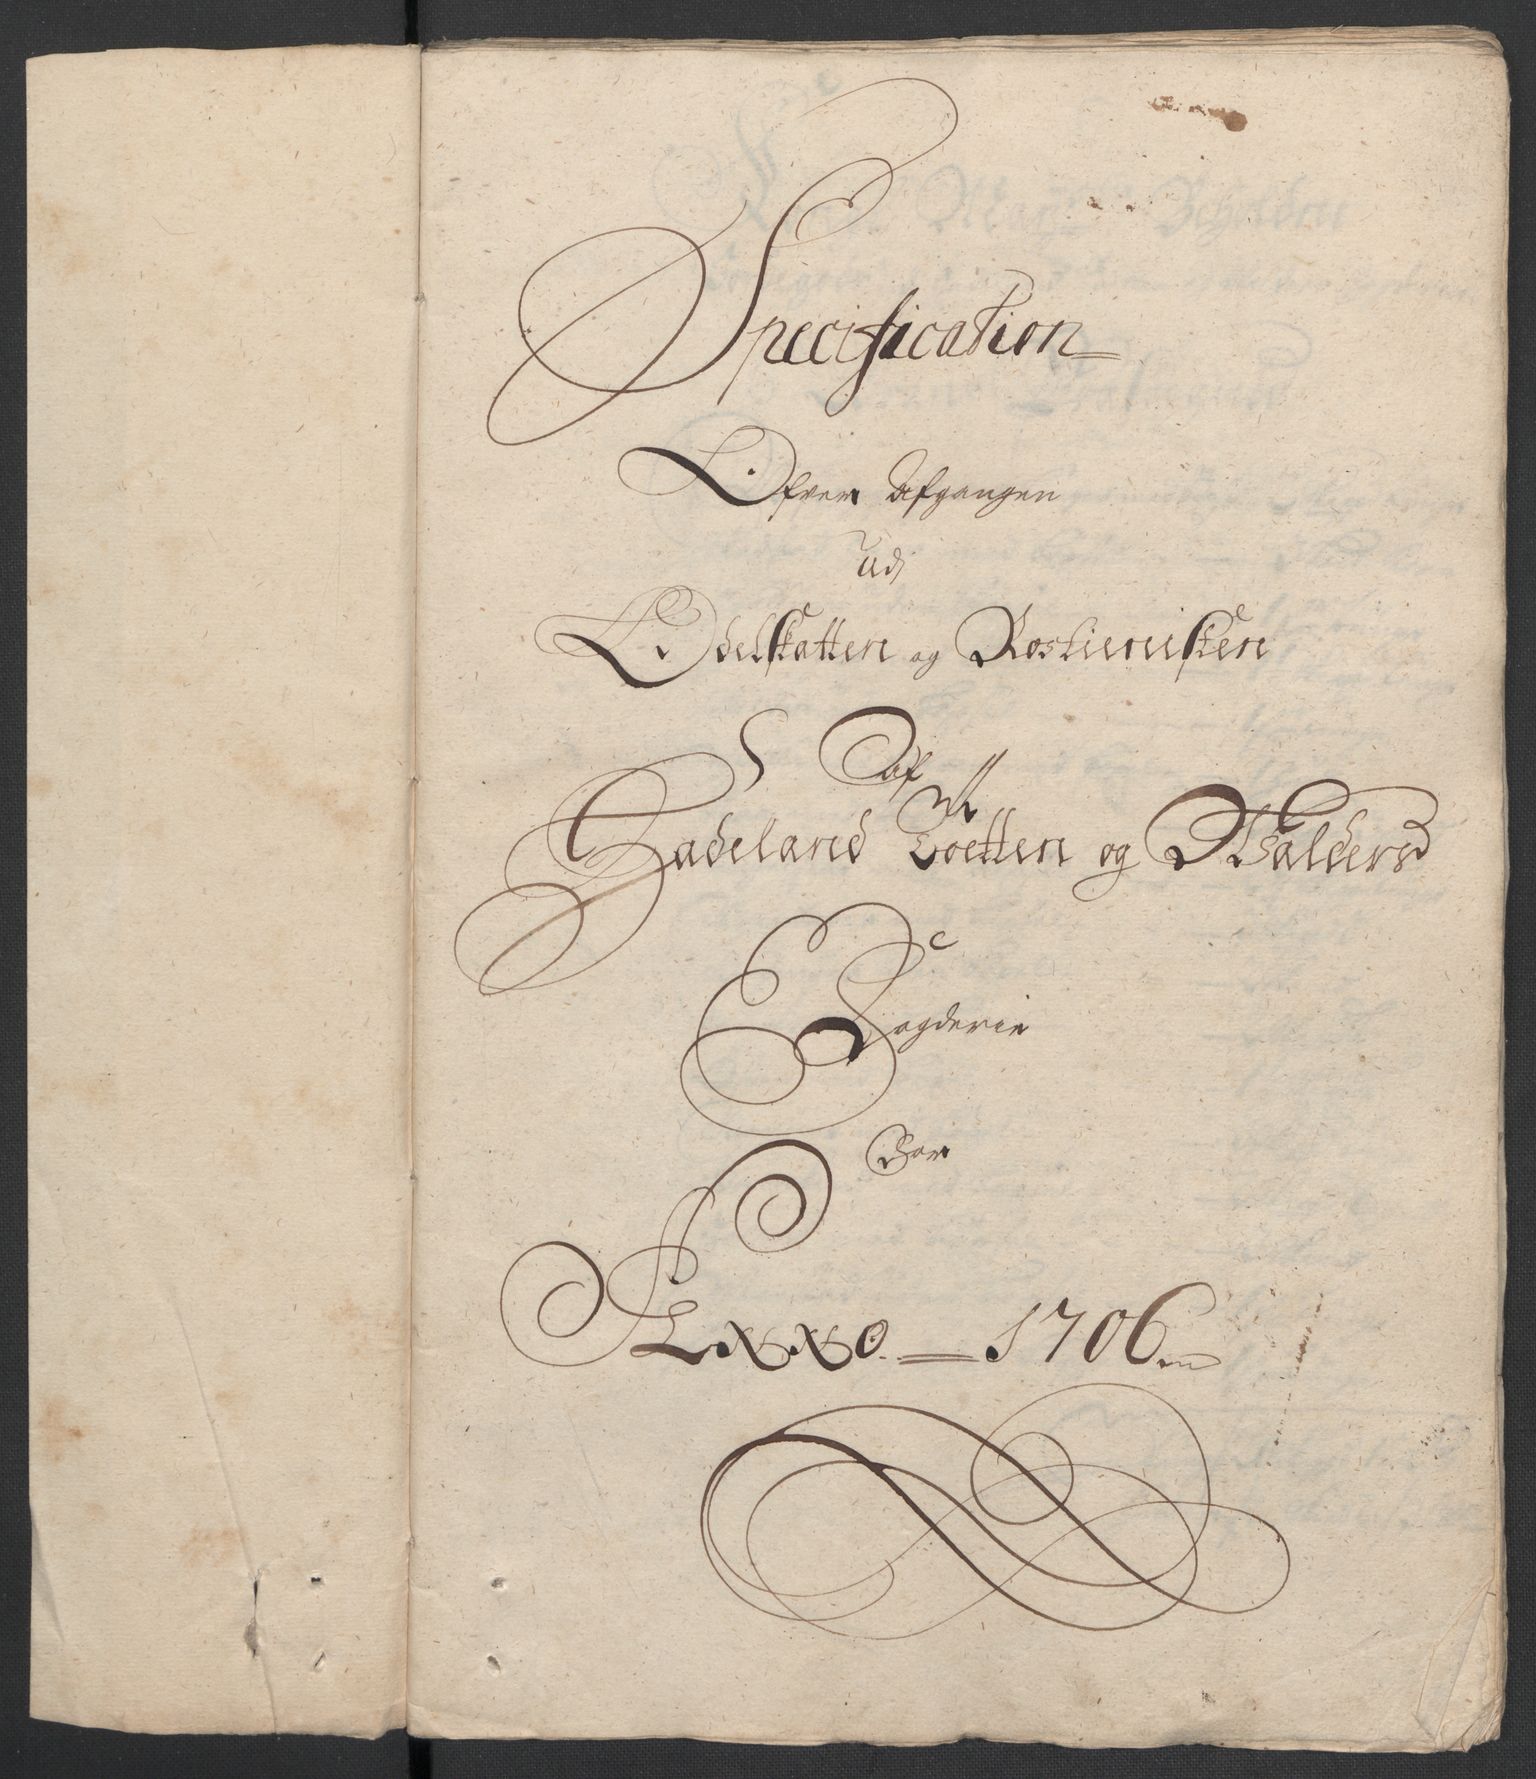 Specification
Ofver Afgangen
udj
Odelskatten og Rostienisten
Af
Hadeland Toetten og Walders
Fogderie
For
Anno 1706